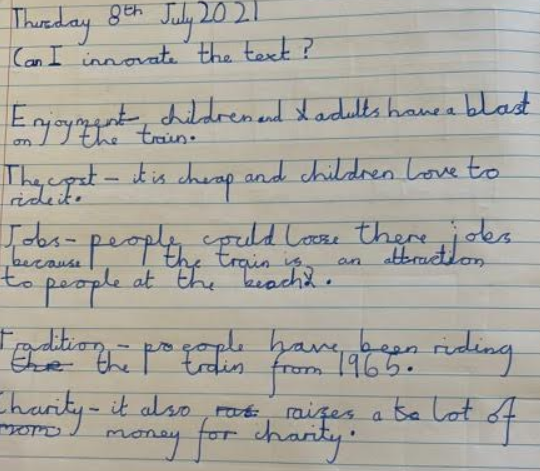 Thursday 8th July 2021
Can I innovate the text?
Enjoyment - children and adults have a blast
on the train.
The cost - it is cheap and children love to
ride it.
Jobs - people could loose there jobs
because the train is an attraction
to people at the beach.
Tradition - peoople have been riding
the train from 1965.
Charity - it also raises a lot of
money for charity.